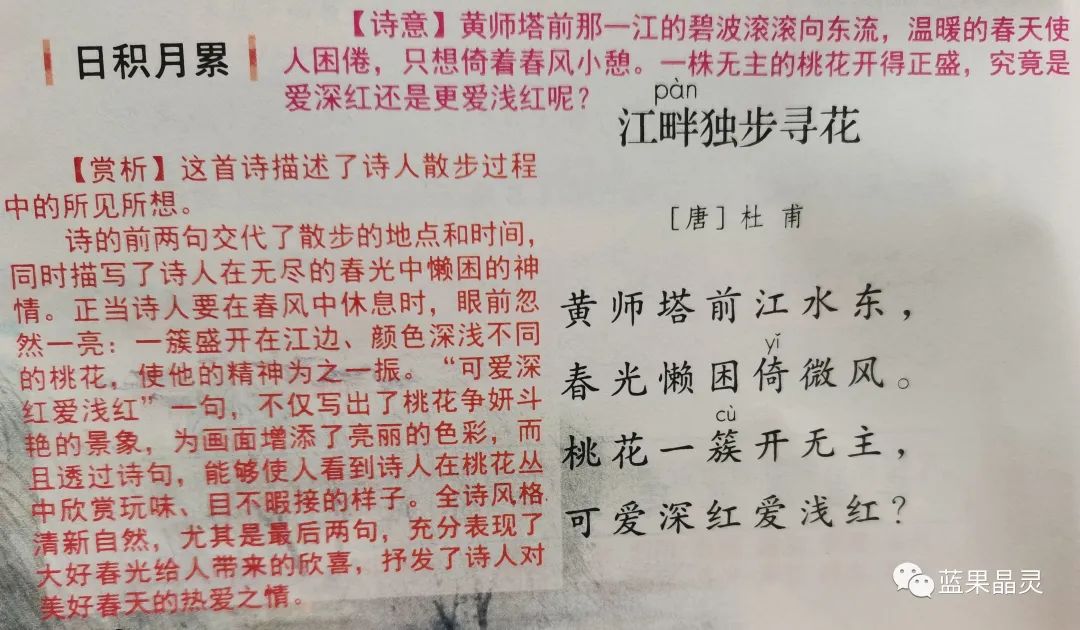 日积月累
【诗意】黄师塔前那一江的碧波滚滚向东流，温暖的春天使
人困倦，只想倚着春风小憩。一株无主的桃花开得正盛，究竟是
爱深红还是更爱浅红呢？
pàn
江畔独步寻花
［唐］杜 甫
黄师塔前江水东，
yǐ
春光懒困倚微风。
cù
桃花一簇开无主，
可爱深红爱浅红？
【赏析】这首诗描述了诗人散步过程
中的所见所想。
诗的前两句交代了散步的地点和时间，
同时描写了诗人在无尽的春光中懒困的神
情。正当诗人要在春风中休息时，眼前忽
然一亮：一簇盛开在江边、颜色深浅不同
的桃花，使他的精神为之一振。“可爱深
红爱浅红”一句，不仅写出了桃花争妍斗
艳的景象，为画面增添了亮丽的色彩，而
且透过诗句，能够使人看到诗人在桃花丛
中欣赏玩味、目不暇接的样子。全诗风格
清新自然，尤其是最后两句，充分表现了
大好春光给人带来的欣喜，抒发了诗人对
美好春天的热爱之情。
蓝果晶灵